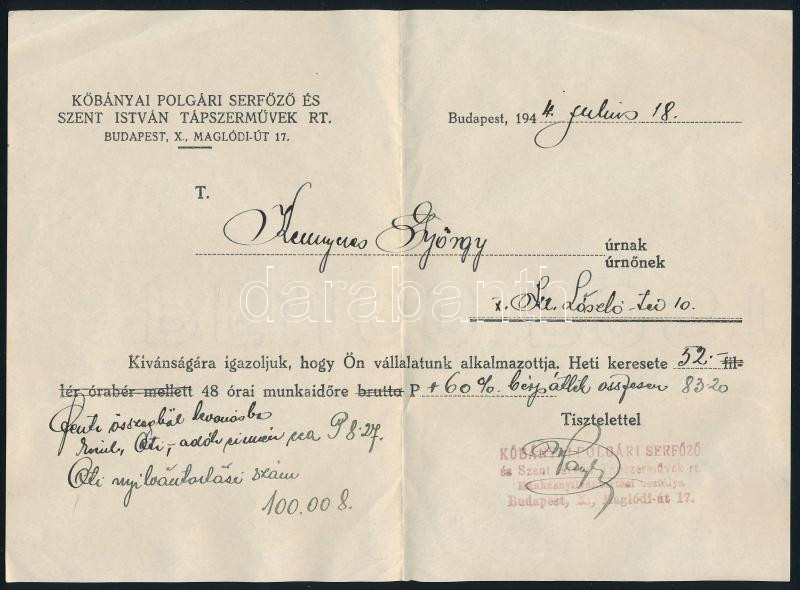 KŐBÁNYAI POLGÁRI SERFŐZŐ ÉS
SZENT ISTVÁN TÁPSZERMŰVEK RT.
BUDAPEST, X., MAGLÓDI-ÚT 17.
Budapest, 1944. július 18.
T.
Kenyeres György
úrnak
úrnőnek
X. Szt. László-tér 10.
darabanth
Kívánságára igazoljuk, hogy Ön vállalatunk alkalmazottja. Heti keresete 52.- fil-
lér órabér mellett 48 órai munkaidőre brutto P + 60% összesen 83.20
Fenti összegből levonásba
Oti, adók címén ca P 8.27.
Oti nyilvántartási szám
100.008.
Tisztelettel
KŐBÁNYAI POLGÁRI SERFŐZŐ
és Szent István Tápszerművek rt.
Budapest, X., Maglódi-út 17.